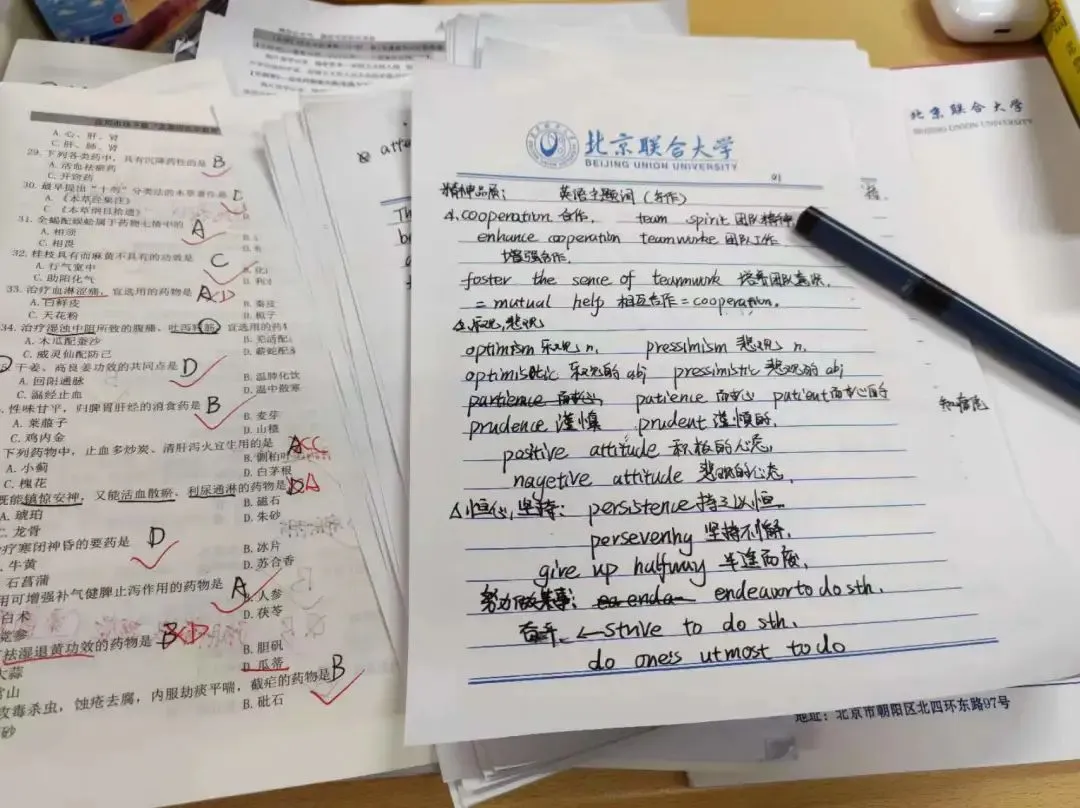 A. 心、肝、肾
C. 肝、肺、肾
29. 下列各类药中，具有沉降药性的是 B
A. 活血祛瘀药
C. 开窍药
30. 最早提出“十剂”分类法的本草著作是
A. 《本草经集注》
C. 《本草纲目拾遗》
31. 全蝎配蜈蚣属于药物七情中的 A
A. 相须
C. 相畏
32. 桂枝具有而麻黄不具有的功效是 C
A. 行气宽中
C. 助阳化气
33. 治疗血淋涩痛，宜选用的药物是 A D
A. 白鲜皮
C. 天花粉
B. 秦皮
D. 栀子
34. 治疗湿浊中阻所致的腹痛、吐泻转筋，宜选用的药
A. 木瓜配蚕沙
C. 威灵仙配防己
干姜、高良姜功效的共同点是 D
A. 回阳通脉
C. 温经止血
B. 温肺化饮
D. 温中散寒
性味甘平，归脾胃肝经的消食药是 B
A. 莱菔子
C. 鸡内金
B. 麦芽
D. 山楂
下列药物中，止血多炒炭、清肝泻火宜生用的是 A C
A. 小蓟
C. 槐花
B. 侧柏叶
D. 白茅根
既能镇惊安神，又能活血散瘀、利尿通淋的药物是 D A
A. 琥珀
C. 龙骨
B. 磁石
D. 朱砂
疗寒闭神昏的要药是 D
牛黄
石菖蒲
B. 冰片
D. 苏合香
用可增强补气健脾止泻作用的药物是 A
白术
党参
B. 人参
D. 茯苓
祛湿退黄功效的药物是 B D
大蒜
常山
B. 胆矾
D. 瓜蒂
攻毒杀虫，蚀疮去腐，内服劫痰平喘，截疟的药物是 B
砂
B. 砒石
北京联合大学
BEIJING UNION UNIVERSITY
精神品质： 英语主题词（合作）
4. cooperation 合作， team spirit 团队精神
enhance cooperation teamworke 团队工作
增强合作，
foster the sence of teamwork 培养团队意识，
= mutual help 相互合作 = cooperation,
乐观，悲观
optimism 乐观 n. pressimism 悲观 n.
optimistic 乐观的 abj pressimistic 悲观的 abj
partience 耐心 patience 耐心 patient 耐心的
prudence 谨慎 prudent 谨慎的
positive attitude 积极的心态，
nagetive attitude 悲观的心态，
恒心，坚持： persistence 持之以恒
persevenhy 坚持不懈，
give up halfway 半途而废，
努力做某事： enda endeavor to do sth.
奋斗 ← strive to do sth.
do oness utmost to do
北京联合大学
BEIJING UNION UNIVERSITY
地址：北京市朝阳区北四环东路97号